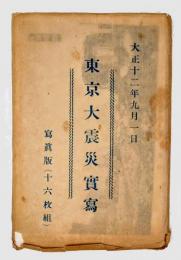 大正十二年九月一日
東京大震災實寫
寫眞版（十六枚組）